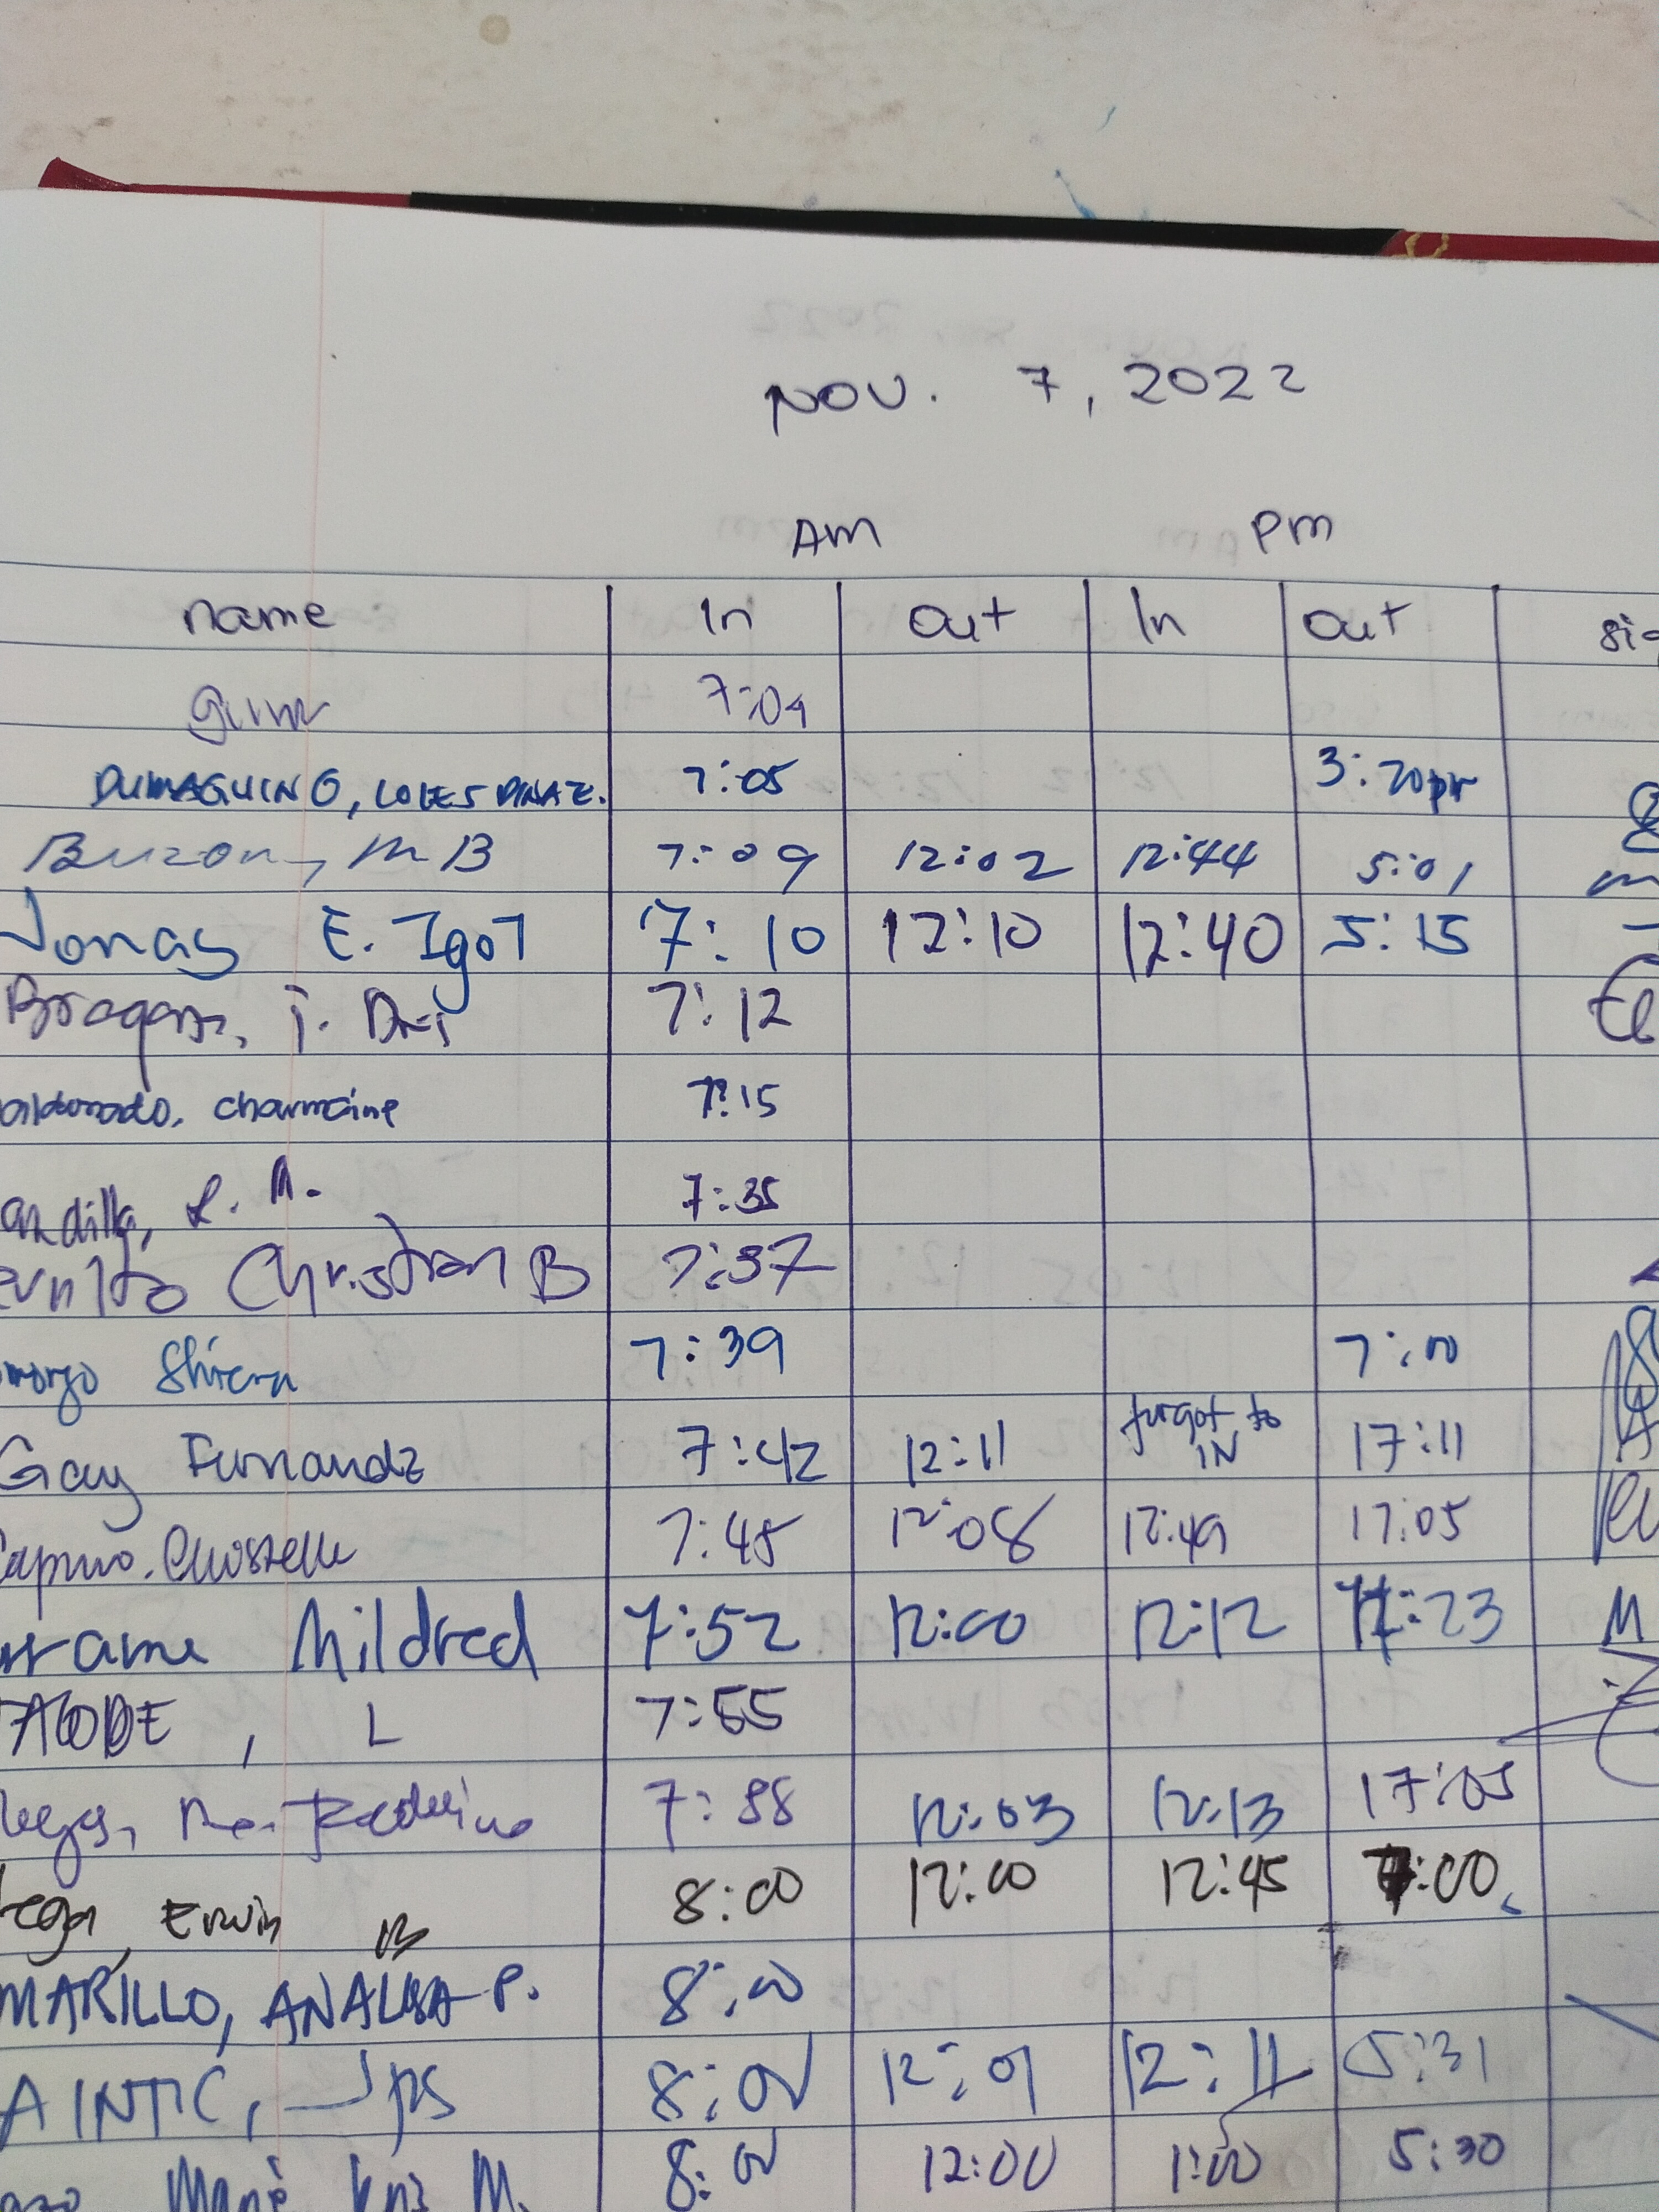 NOV. 7, 2022
AM PM
name In Out In Out
7:04
DUMAGUING, 7:05 3:20
Buzon, MB 7:09 12:02 12:44 5:01
Jonas E. Igot 7:10 12:10 12:40 5:15
7:12
aldonado, charmaine 7:15
andilla, L. M. 7:35
Christian B 7:37
Shiera 7:39 7:00
Gay Furnandz 7:42 12:11 forgot to IN 17:11
7:45 12:08 12:49 17:05
Mildred 7:52 12:00 12:12 17:23
L 7:55
7:58 12:03 12:13 17:05
ega, Erwin 8:00 12:00 12:45 7:00
MARILLO, ANALISA P. 8:00
AINTIC, 12:01 12:11 5:31
M. 12:00 1:00 5:30